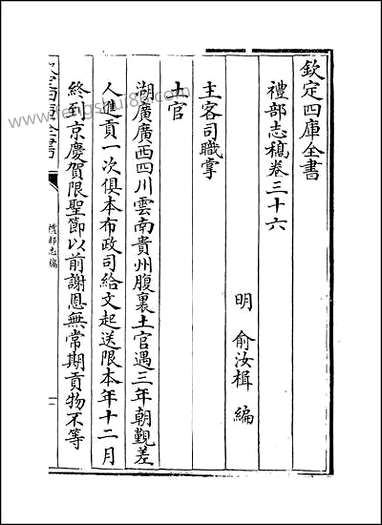 欽定四庫全書
禮部志稿卷三十六
明 俞汝楫 編
主客司職掌
土官
湖廣廣西四川雲南貴州腹裏土官遇三年朝覲差
人進貢一次俱本布政司給文起送限本年十二月
終到京慶賀限聖節以前謝恩無常期貢物不等
欽定四庫全書
禮部志稿
一